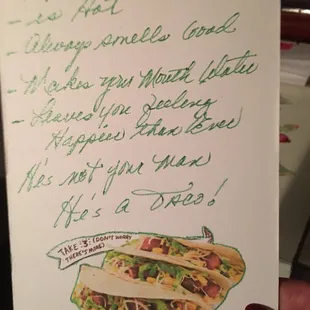 - is Hot
- Always smells Good
- Makes your Mouth Water
- Leaves you feeling
Happier than Ever
He's not your man
He's a Taco!
TAKE :3: (DON'T WORRY
THERE'S MORE)